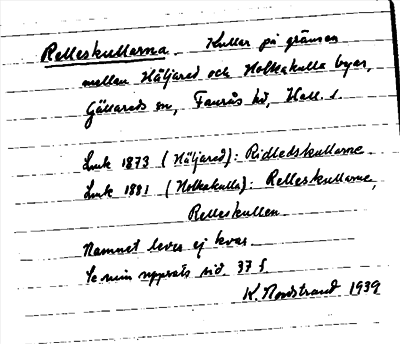 Relleskullarna. Kullar på gränsen
mellan Häljared och Holkakulla byar,
Gällareds sn, Faurås hd, Hall. l.
Lmk 1873 (Häljared): Ridledskullarne.
Lmk 1881 (Holkakulla): Relleskullarne,
Relleskullen.
Namnet lever ej kvar.
Se min uppsats sid. 37 f.
K. Nordstrand 1939